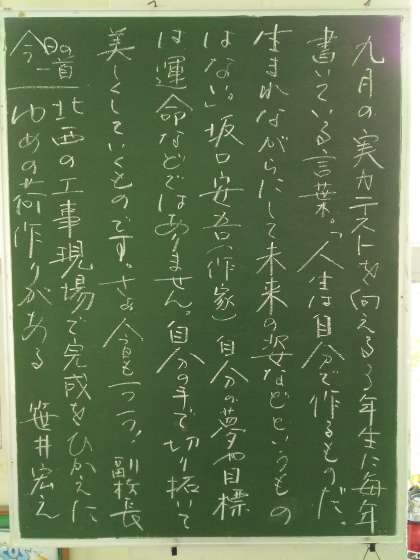 九月の実力テストを向える3年生に毎年
書いている言葉。「人生は自分で作るものだ。
生まれながらにして未来の姿などというもの
はない」。坂口安吾(作家) 自分の夢や目標
は運命などではありません。自分の手で切り拓いて
美しくしていくものです。さぁ今日も一つ一つ! 副校長
今日の一首
北西の工事現場で完成をひかえた
ゆめの荷作りがある 笹井宏之